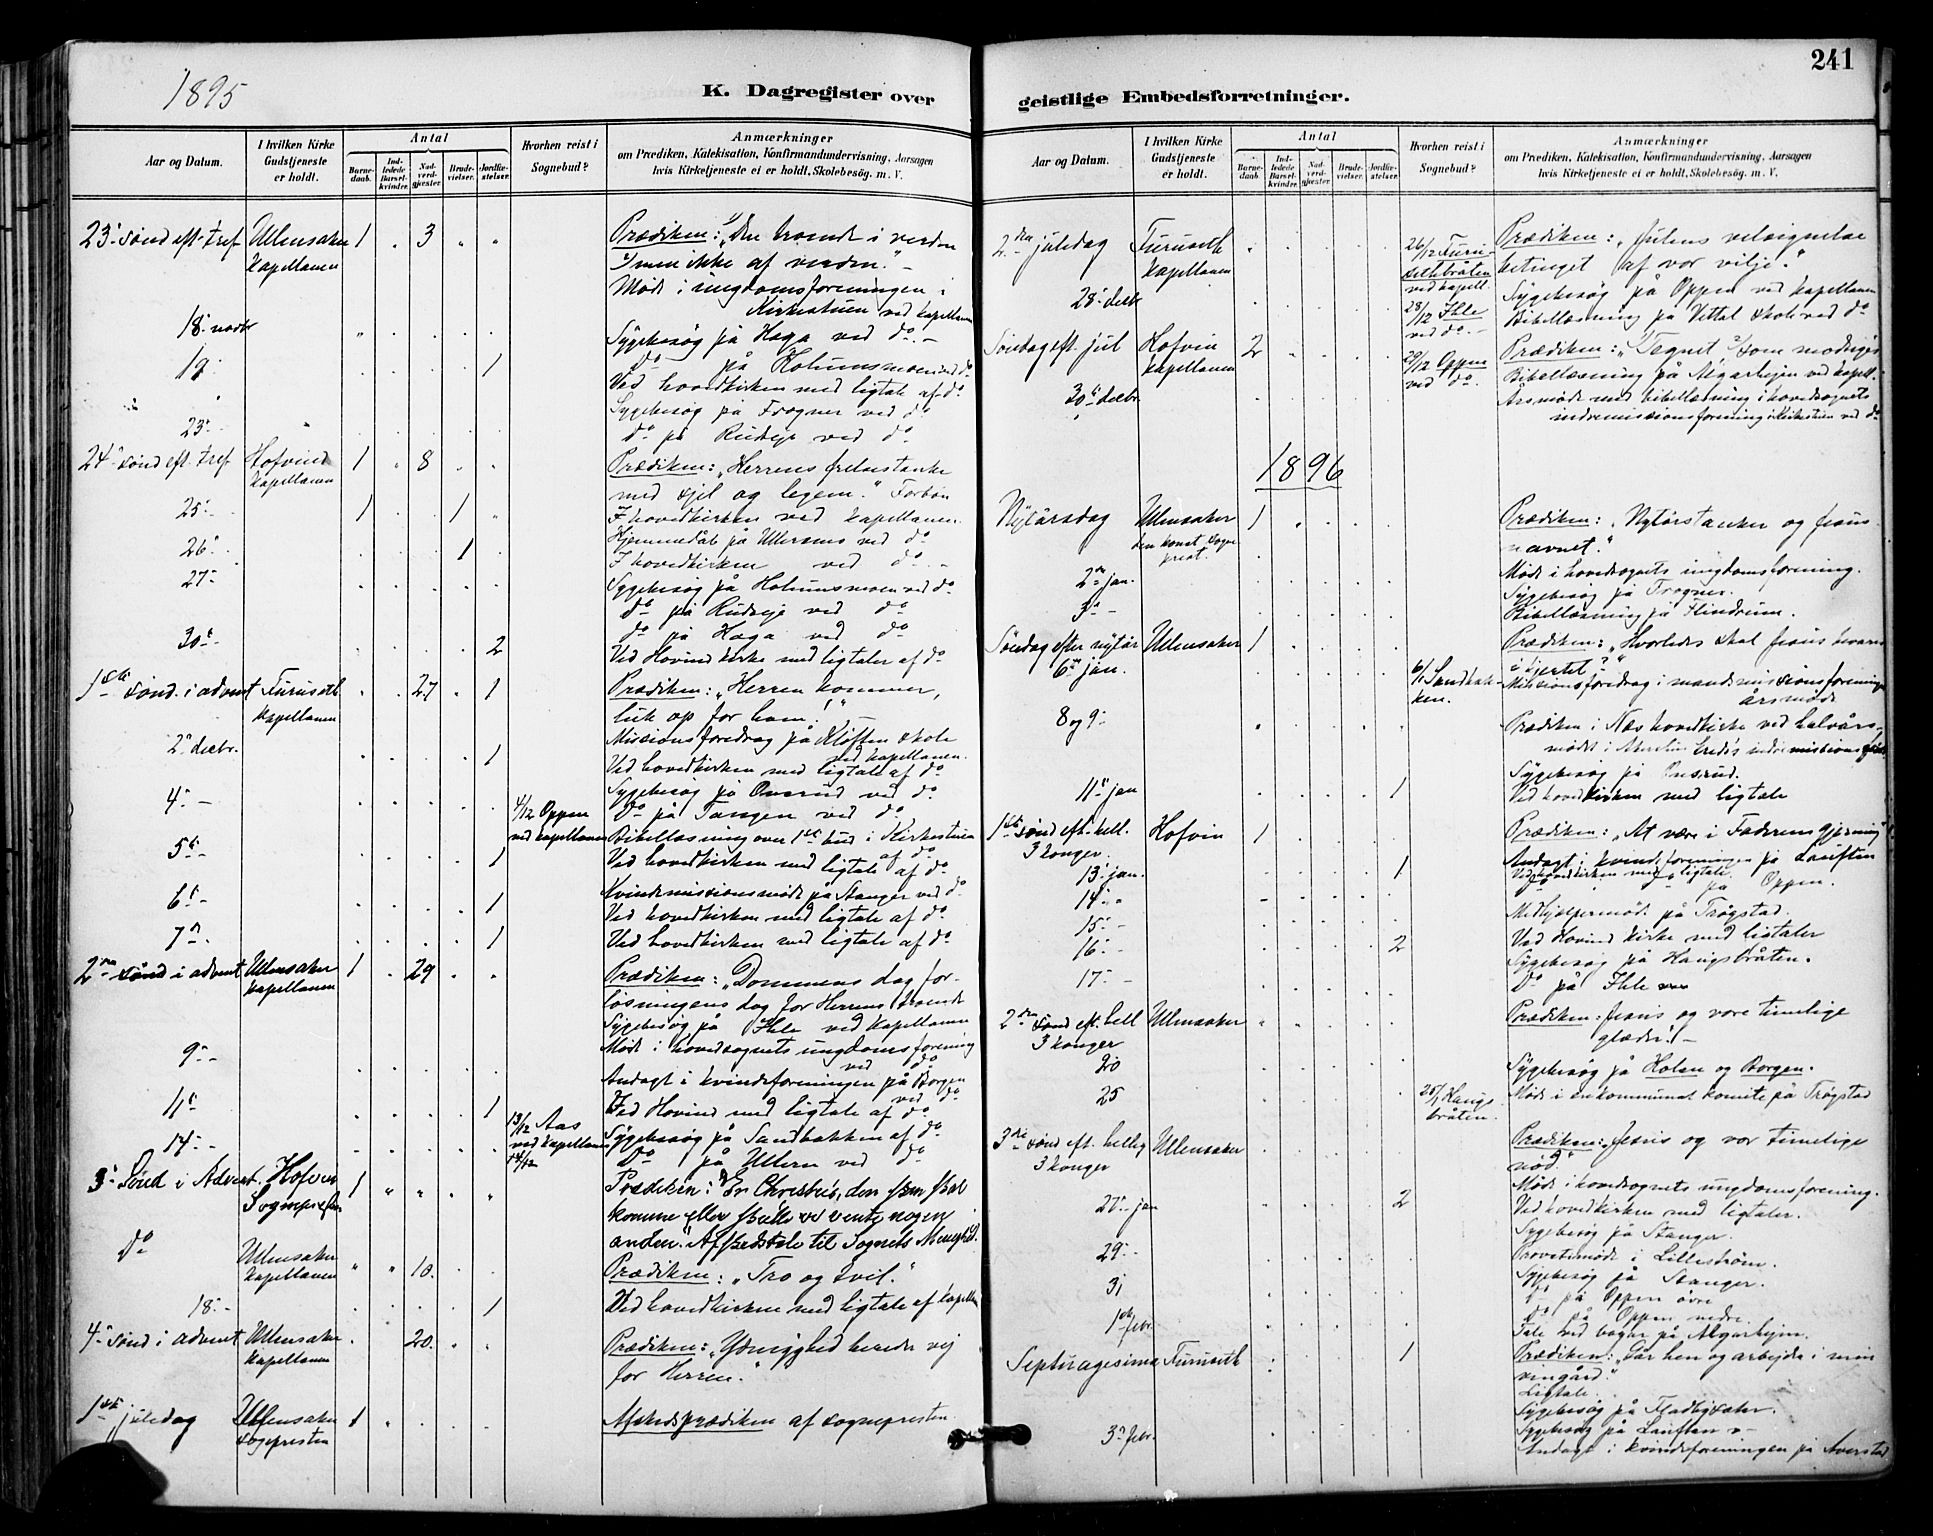 1895
K. Dagregister over
Aar og Datum.
I hvilken Kirke Gudstjeneste er holdt.
Antal
Barnedaab.
Indledede Barselkvinder.
Nadverdgjester.
Brudevielser.
Jordfæstelser.
Hvorhen reist i Sognebud?
Anmærkninger
om Prædiken, Katekisation, Konfirmandundervisning, Aarsagen
hvis Kirketjeneste ei er holdt, Skolebesøg. m. V.
23' sønd eft. tref Ullensaker 1 . 3 . . Prædiken: "Den troende i verden
kapellanen men ikke af verden." -
Møde i ungdomsforeningen i
Kirkestuen ved kapellanen
18' novbr Sygebesøg på Haga ved do -
19' 1 do på Holumsmoen ved do
Ved hovedkirken med ligtale af do
Sygebesøg på Frogner ved do
23' do på Rudsje ved do
24' sønd eft. tref. Hofvind 1 . 8 . . Prædiken: "Herrens frelsestanke
kapellanen med sjel og legem." Forbøn
25' - 1 . . 1 . I hovedkirken ved kapellanen.
Hjemmedåb på Ullerens ved do
26' . . . 1 . I hovedkirken ved do -
27' - Sygebesøg på Holumsmoen ved do
do på Rudsje ved do
do på Haga ved do
30' - . . . . 2 Ved Hovind kirke med ligtaler af do
1ste sønd. i advent Furuseth . . 27 . 1 Prædiken: "Herren kommer,
kapellanen luk op for ham!"
Missionsforedrag på Kløften skole
ved kapellanen.
2' decbr. . . . . 1 Ved hovedkirken med ligtale af do
Sygebesøg på Onsrud ved do
4' - 4/12 Oppen do på Tangen ved do
ved kapellanen Bibellæsning over 1ste bud i Kirkestuen
af do
5' - . . . . 1 Ved hovedkirken med ligtale af do
Kvindemissionsmøde på Stanger ved do
6' . . . . 1 Ved hovedkirken med ligtale af do
7' . . . . 1 Ved hovedkirken med ligtale af do
2den sønd i advent Ullensaker 1 . 29 . . Prædiken: "Dommens dag for-
kapellanen løsningens dag for Herrens troende
Sygebesøg på Ihle ved kapellanen
9' - Møde i hovedsognets ungdomsforening
ved do
Andagt i kvindeforeningen på Borgen
ved do
11' . . . . 1 Ved Hovind med ligtale af do
13/12 Aas
ved kapellanen Sygebesøg på Sandbakken af do
14' - 14/12 do på Ullern ved do
3' Sønd i Advent. Hofven 1 " " " " Prædiken: Er Christus, den som skal
Sognepresten komme eller skulle vi vente nogen
anden." Afskedstale til Sognets Menighed.
do Ullensaker " " 10. . . Prædiken: "Tro og tvil."
kapellanen
18' - . . . . 1 Ved hovedkirken med ligtale af kapellan
4' sønd i advent Ullensaker . . 20. . . Prædiken: "Ydmyghed bereder vej
kapellanen for Herren."
1ste juledag Ullensaker 1 . . . . Afskedsprædiken af sognepresten.
sognepresten
241
geistlige Embedsforretninger.
Aar og Datum.
I hvilken Kirke Gudstjeneste er holdt.
Antal
Barnedaab.
Indledede Barselkvinder.
Nadverdgjester.
Brudevielser.
Jordfæstelser.
Hvorhen reist i Sognebud?
Anmærkninger
om Prædiken, Katekisation, Konfirmandundervisning, Aarsagen
hvis Kirketjeneste ei er holdt, Skolebesøg. m. V.
2den juledag Furuseth 26/12 Furu- Prædiken: "Julens velsignelse
kapellanen sethbråten betinget af vor vilje."
ved kapell. Sygebesøg på Oppen ved kapellanen
28' decbr 28/12 Ihle Bibellæsning på Vettal skole ved do
ved do. -
Søndag eft. jul Hofven 2 . . . . 29/12 Oppen Prædiken: "Tegnet, som modsiges
kapellanen ved do. Bibellæsning på Algarhejm ved kapell.
30' decbr. Årsmøde med bibellæsning i hovedsognets
indremissionsforening i Kirkestuen ved do
1896
Nytårsdag Ullensaker 1 Prædiken: "Nytårstanker og Jesus-
den konst. sogneprest. navnet."
2' jan. Møde i hovedsognets ungdomsforening.
Sygebesøg på Frogner.
3' - Bibellæsning på Flindrum.
Søndag efter nytår Ullensaker 1 Prædiken: "Hvorledes skal Jesus bevares
i hjertet?"
6' jan. 6/1 Sandbak- Missionsforedrag i mandsmissionsforeningens
ken. årsmøde
8 og 9' Prædiken i Næs hovedkirke ved halvårs-
møde i kreds indremissions
Sygebesøg på Onsrud.
11' jan 1 Ved hovedkirken med ligtale
1ste sønd eft. hell. Hofvin 1 Prædiken: "At være i Faderens gjerning"
3 konger Andagt i kvindeforeningen på Lauften
13' jan. 1 Ved hovedkirken med ligtale
do på Oppen.
14' - Medhjælpermøde på Trøgstad.
15' -
16' - 2 Ved Hovind kirke med ligtaler
Sygebesøg på Haugsbråten.
17' - do på Ihle
2den sønd eft. hell Ullensaker Prædiken: Jesus og vore timelige
3 konger glæder! -
20 Sygebesøg på Holen og Borgen.
25 25/1 Haugs- Møde i en kommunal komite på Trøgstad
bråten.
3die sønd eft. hellig Ullensaker Prædiken: "Jesus og vor timelige
3 konger nød."
Møde i hovedsognets ungdomsforening.
27' jan 2 Ved hovedkirken med ligtaler.
Sygebesøg på Stanger.
29' - Provstemøde i Lillestrøm.
Sygebesøg på Stanger.
31 do på Oppen øvre
do på Oppen nedre.
1ste febr. Tale ved bøgar på Algarhejm.
Septuagesima Furuseth 1 Prædiken: "Går hen og arbejder i min
vingård."
Ligtale.
Sygebesøg på Fladbysæter.
3' febr. Sygebesøg på Lauften
Andagt i kvindeforeningen på Averstad